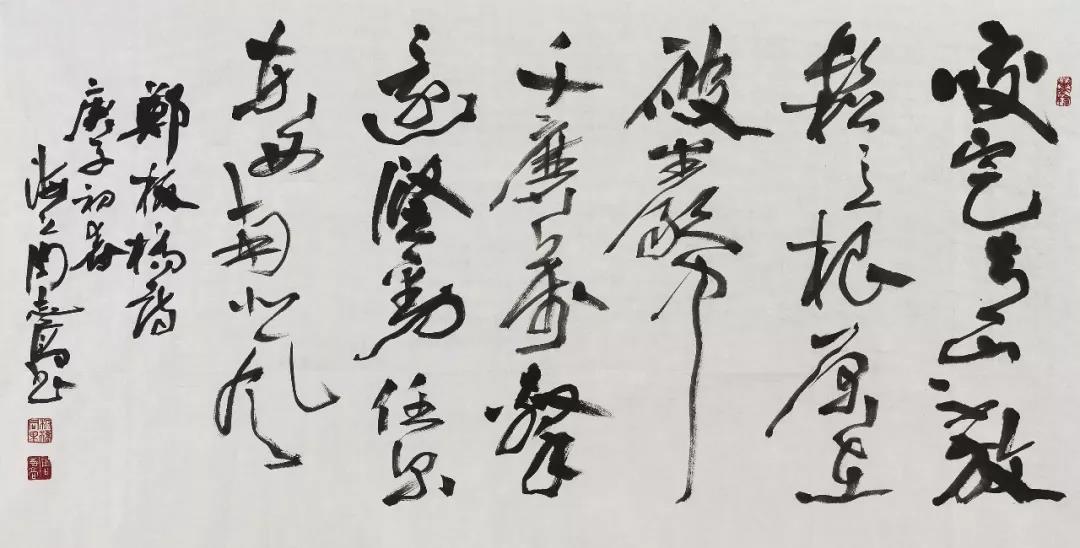 咬定青山不放
鬆立根原在
破巖中
千磨萬擊
還堅勁任尔
東西南北風
鄭板橋詩
庚子初春
海上周志高书